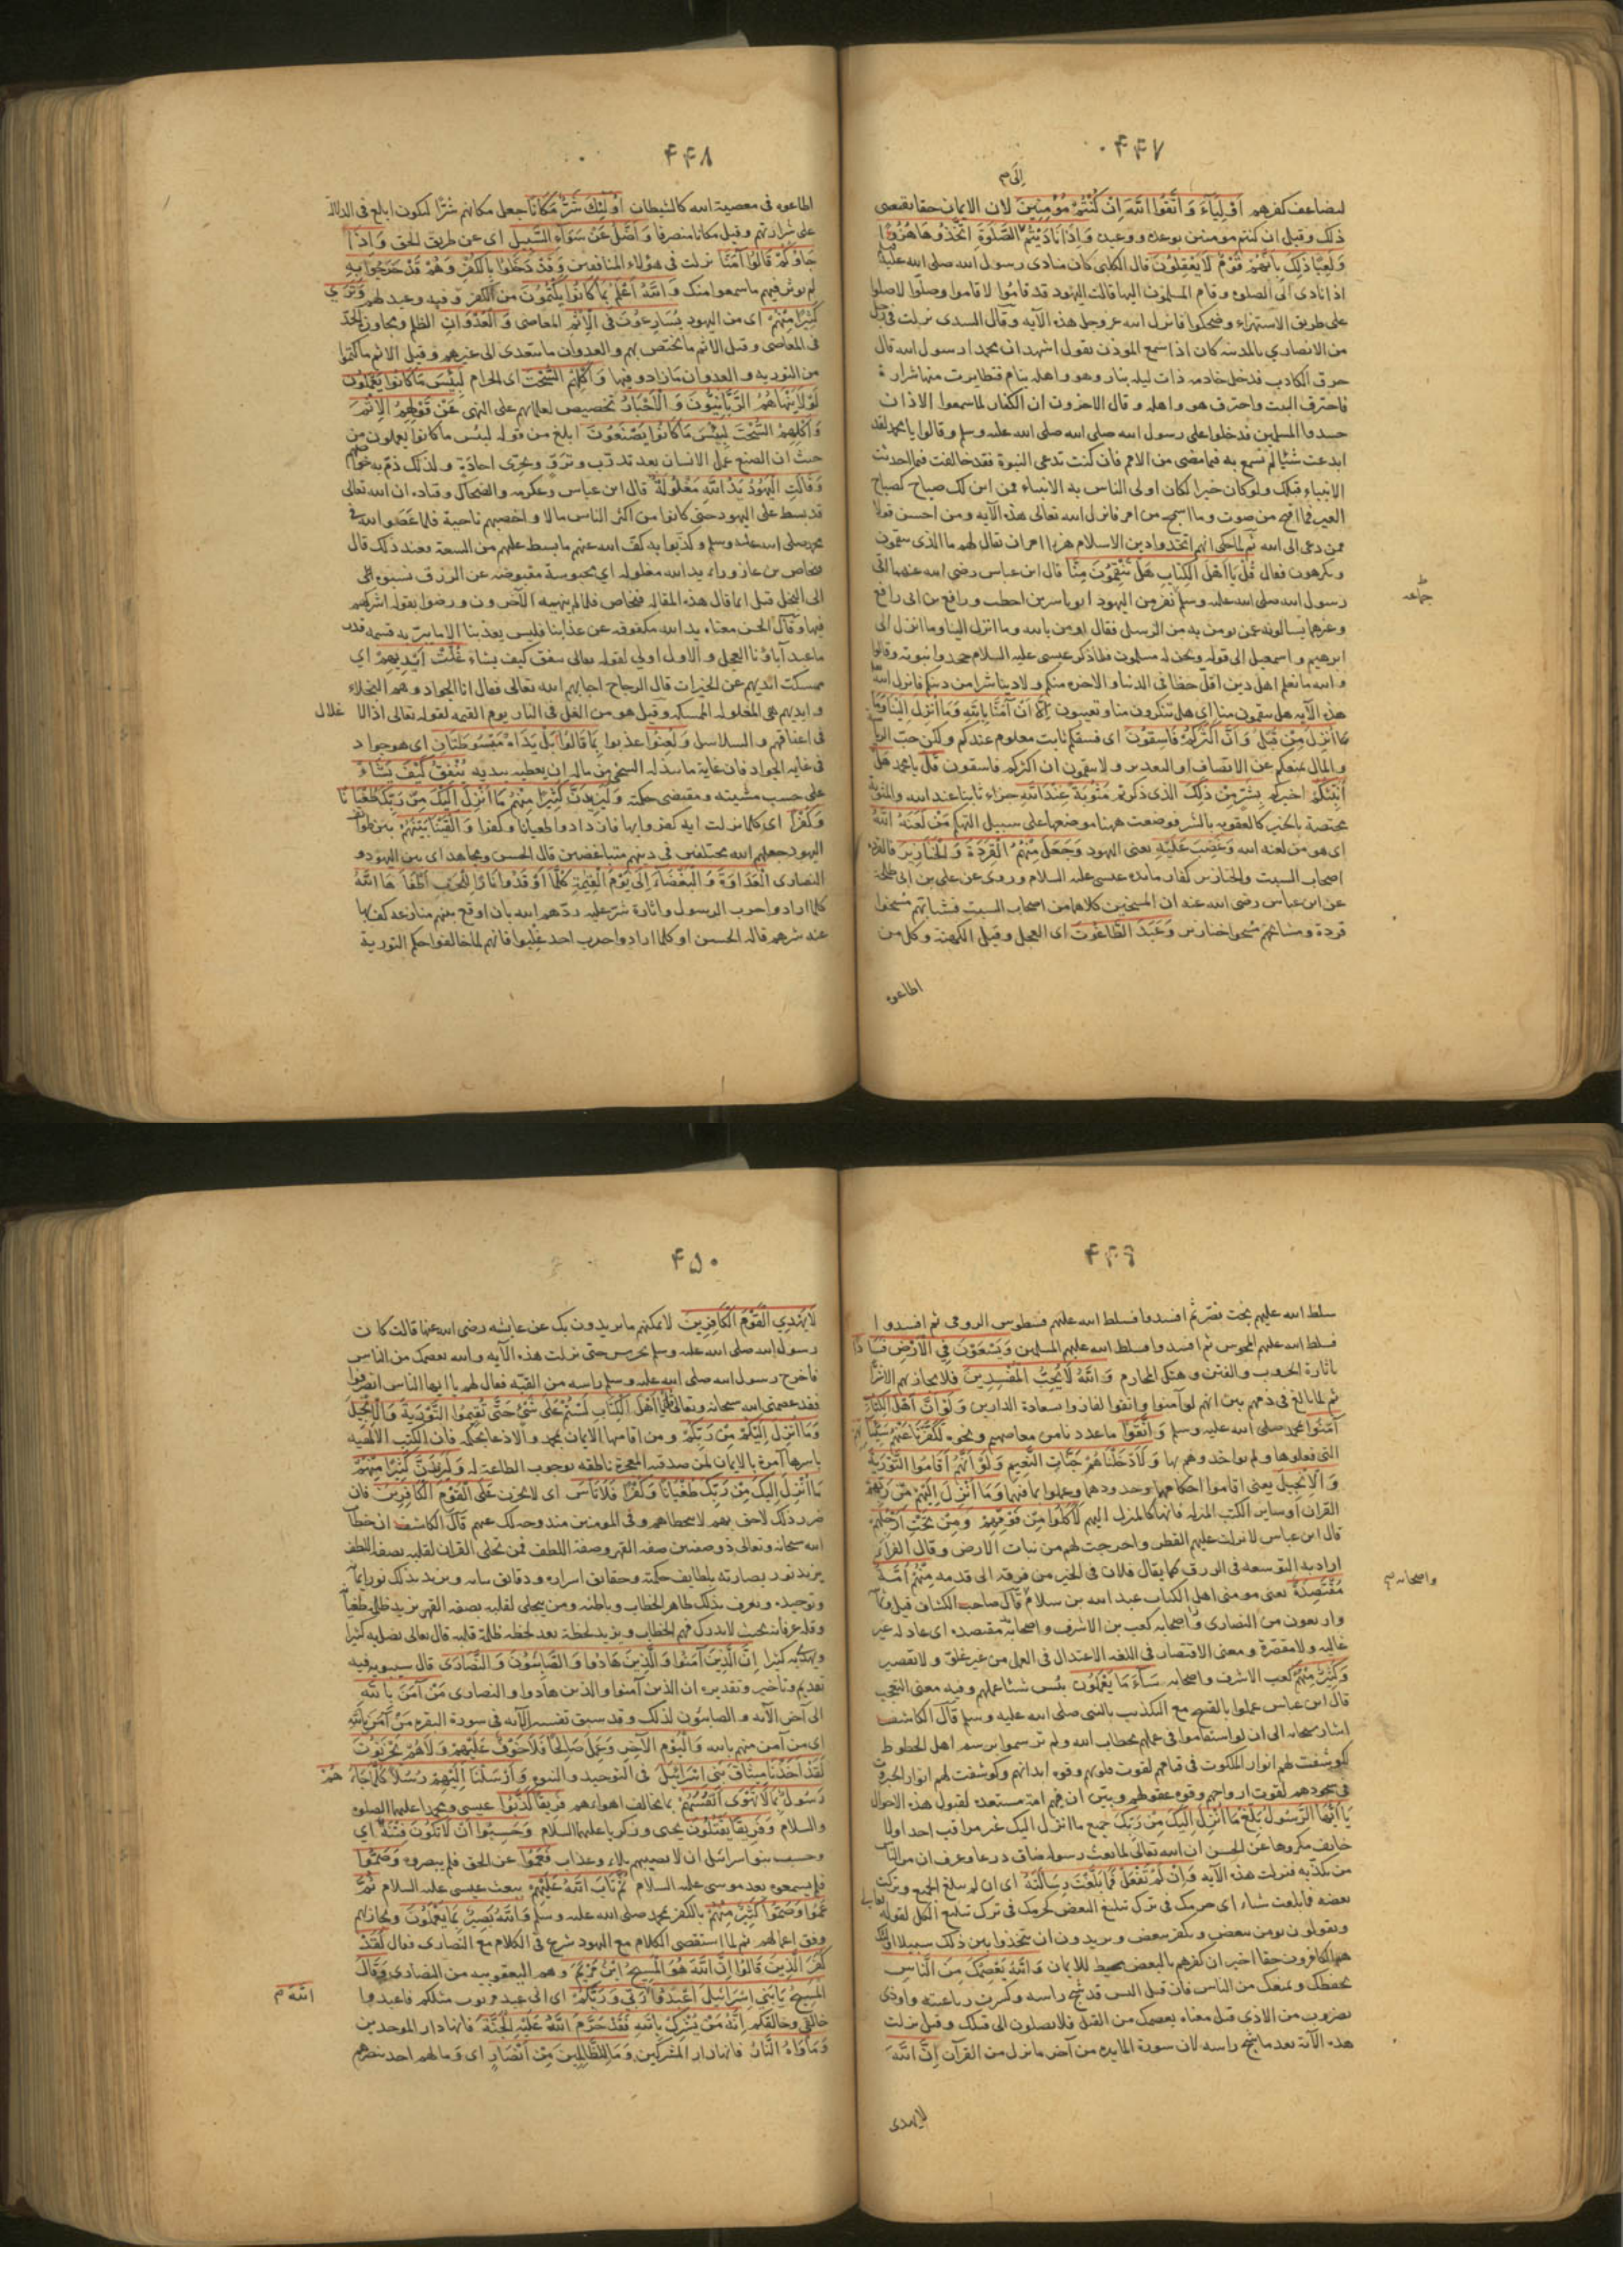 ۴۴۷
إلى م
لتضاعف كفرهم أَوْلِيَاءَ وَاتَّقُوا اللهَ اِنْ كُنْتُمْ مُؤْمِنِينَ لان الايمان حقا يقتضى
ذلك وقيل ان كنتم مومنين بوعده ووعيده وَاِذَا نَادَيْتُمْ الصَّلَوةِ اتَّخَذُوهَا هُزُوًا
وَلَعِبًا ذَلِكَ بِاَنَّهُمْ قَوْمٌ لَا يَعْقِلُونَ قال الكلبى كان منادى رسول الله صلى الله عليه
اذا نادى الى الصلوه وقام المسلمون اليها قالت اليهود قد قاموا لا قاموا وصلوا لا صلوا
على طريق الاستهزاء وضحكوا فانزل الله عز وجل هذه الآيه وقال السدى نزلت فى رجل
من الانصارى بالمدينه كان اذا سمع الموذن يقول اشهد ان محمدا رسول الله قال
حرق الكاذب فدخل خادمه ذات ليله بنار وهو واهله نيام فتطايرت منها شرارة
فاحترق البيت واحترق هو واهله وقال الاخرون ان الكفار لما سمعوا الاذان
حسدوا المسلمين فدخلوا على رسول الله صلى الله عليه وسلم وقالوا يا محمد لقد
ابدعت شئا لم نسمع به فيما مضى من الامم فان كنت تدعى النبوة فقد خالفت فيما احدثت
الانبياء قبلك ولو كان خيرا لكان اولى الناس به الانبياء فمن اين لك صياح كصياح
العير فما اقبح من صوت وما اسمج من امر فانزل الله تعالى هذه الآيه ومن احسن قولا
ممن دعى الى الله ثم لما حكى انهم اتخذوا دين الاسلام هزوا امر ان يقال لهم ما الذى تنقمون
وتكرهون فقال قُلْ يَا اَهْلَ الْكِتَابِ هَلْ تَنْقِمُونَ مِنَّا قال ابن عباس رضى الله عنهما اتى
رسول الله صلى الله عليه وسلم نفر من اليهود ابو ياسر بن اخطب ورافع بن ابى رافع
وغيرهما يسالونه عمن يومن به من الرسل فقال اومن بالله وما انزل الينا وما انزل الى
ابرهيم واسمعيل الى قوله ونحن له مسلمون فلما ذكر عيسى عليه السلام جحدوا نبوته وقالوا
والله ما نعلم اهل دين اقل حظا فى الدنيا والاخره منكم ولا دينا شرا من دينكم فانزل الله
هذه الآيه هل تنقمون منا اى هل تنكرون منا وتعيبون اِلَّا اَنْ آمَنَّا بِاللهِ وَمَا اُنْزِلَ اِلَيْنَا وَمَا
اُنْزِلَ مِنْ قَبْلُ وَاَنَّ اَكْثَرَكُمْ فَاسِقُونَ اى فسقكم ثابت معلوم عندكم ولكن حب الرياسة
والمال يمنعكم عن الانصاف ان اكثركم فاسقون قُلْ يا محمد هَلْ
اُنَبِّئُكُمْ اخبركم بِشَرٍّ مِنْ ذَلِكَ الذى ذكرتم مَثُوبَةً عِنْدَ اللهِ جزاء ثابتا عند الله والمثوبة
مختصة بالخير كالعقوبه بالشر فوضعت ههنا موضعها على سبيل التهكم مَنْ لَعَنَهُ اللهُ
اى هو من لعنه الله وَغَضِبَ عَلَيْهِ يعنى اليهود وَجَعَلَ مِنْهُمُ الْقِرَدَةَ وَالْخَنَازِيرَ فالقردة
اصحاب السبت والخنازير كفار مايده عيسى عليه السلام وروى عن على بن ابى طلحة
عن ابن عباس رضى الله عنه ان المسيخين كلاهما من اصحاب السبت فشبابهم مسخوا
قردة ومشائخهم مسخوا خنازير وَعَبَدَ الطَّاغُوتَ اى العجل وقيل الكهنة وكل من
جماعه
اطاعوه
۴۴۸
اطاعوه فى معصية الله كالشيطان اُولَئِكَ شَرٌّ مَكَانًا جعل مكانهم شرا ليكون ابلغ فى الدلاله
على شرارتهم وقيل مكانا منصرفا وَاَضَلُّ عَنْ سَوَاءِ السَّبِيلِ اى عن طريق الحق وَاِذَا
جَاؤُكُمْ قَالُوا آمَنَّا نزلت فى هؤلاء المنافقين وَقَدْ دَخَلُوا بِالْكُفْرِ وَهُمْ قَدْ خَرَجُوا بِهِ
لم يوثر فيهم ما سمعوا منك وَاللهُ اَعْلَمُ بِمَا كَانُوا يَكْتُمُونَ من الكفر وفيه وعيد لهم وَتَرَى
كَثِيرًا مِنْهُمْ اى من اليهود يُسَارِعُونَ فى الْاِثْمِ المعاصى وَالْعُدْوَانِ الظلم وتجاوز الحد
فى المعاصى وقيل الاثم ما يختص بهم والعدوان ما يتعدى الى غيرهم وقيل الاثم ما كتموا
من التوريه والعدوان ما زادوا فيها وَاَكْلِهِمُ السُّحْتَ اى الحرام لَبِئْسَ مَا كَانُوا يَعْمَلُونَ
لَوْلَا يَنْهَاهُمُ الرَّبَّانِيُّونَ وَالْاَحْبَارُ تحضيض لعلمائهم على النهى عَنْ قَوْلِهِمُ الْاِثْمَ
وَاَكْلِهِمُ السُّحْتَ لَبِئْسَ مَا كَانُوا يَصْنَعُونَ ابلغ من قوله لبئس ما كانوا يعملون من
حيث ان الصنع عمل الانسان بعد تدرب وتروٍّ وتحرى اجادةٍ ولذلك ذم به خواصهم
وَقَالَتِ الْيَهُودُ يَدُ اللهِ مَغْلُولَةٌ قال ابن عباس وعكرمه والضحاك وقتاده ان الله تعالى
قد بسط على اليهود حتى كانوا من اكثر الناس مالا واخصبهم ناحية فلما عصوا الله فى
محمد صلى الله عليه وسلم وكذبوا به كف الله عنهم ما بسط عليهم من السعة فعند ذلك قال
فنحاص بن عازوراء يد الله مغلوله اى محبوسة مقبوضه عن الرزق نسبوه الى
الى البخل قيل انما قال هذه المقاله فنحاص فلما لم ينهه الآخرون ورضوا بقوله اشركهم
فيها وقال الحسن معناه يد الله مكفوفه عن عذابنا فليس يعذبنا الا ما يبر به قسمه قدر
ما عبد آباؤنا العجل والاول اولى لقوله تعالى ينفق كيف يشاء غُلَّتْ اَيْدِيهِمْ اى
مسكت ايديهم عن الخيرات قال الزجاج اجابهم الله تعالى فقال انا الجواد وهم البخلاء
وايديهم هى المغلوله الممسكه وقيل هو من الغل فى النار يوم القيمه لقوله تعالى اذ الاغلال
فى اعناقهم والسلاسل وَلُعِنُوا عذبوا بِمَا قَالُوا بَلْ يَدَاهُ مَبْسُوطَتَانِ اى هو جواد
فى غايه الجواد فان غاية ما يبذله السخى من ماله ان يعطيه بيديه يُنْفِقُ كَيْفَ يَشَاءُ
على حسب مشيته ومقتضى حكمته وَلَيَزِيدَنَّ كَثِيرًا مِنْهُمْ مَا اُنْزِلَ اِلَيْكَ مِنْ رَبِّكَ طُغْيَانًا
وَكُفْرًا اى كلما نزلت ايه كفروا بها فازدادوا طغيانا وكفرا وَاَلْقَيْنَا بَيْنَهُمْ بين طوائف
اليهود جعلهم الله مختلفين فى دينهم متباغضين قال الحسن ومجاهد اى بين اليهود و
النصارى الْعَدَاوَةَ وَالْبَغْضَاءَ اِلَى يَوْمِ الْقِيَمَةِ كُلَّمَا اَوْقَدُوا نَارًا لِلْحَرْبِ اَطْفَاَهَا اللهُ
كلما ارادوا حرب الرسول واثارة شر عليه ردهم الله بان اوقع بينهم منازعه كف بها
عنه شرهم قاله الحسن او كلما ارادوا حرب احد غلبوا فانهم لما خالفوا حكم التورية
۴۴۹
سلط الله عليهم بخت نصر ثم افسدوا فسلط الله عليهم فطوس الرومى ثم افسدوا
فسلط الله عليهم المجوس ثم افسدوا فسلط الله عليهم المسلمين وَيَسْعَوْنَ فِى الْاَرْضِ فَسَادًا
باثارة الحروب والفتن وهتك المحارم وَاللهُ لَا يُحِبُّ الْمُفْسِدِينَ فلا يجازيهم الا شرا
ثم لما بالغ فى ذمهم بين انهم لو آمنوا واتقوا لفازوا بسعادة الدارين وَلَوْ اَنَّ اَهْلَ الْكِتَابِ
آمَنُوا بمحمد صلى الله عليه وسلم وَاتَّقَوْا ما عددنا من معاصيهم ونحوه لَكَفَّرْنَا عَنْهُمْ سَيِّئَاتِهِمْ
التى فعلوها ولم نواخذهم بها وَلَاَدْخَلْنَاهُمْ جَنَّاتِ النَّعِيمِ وَلَوْ اَنَّهُمْ اَقَامُوا التَّوْرَيةَ
وَالْاِنْجِيلَ يعنى اقاموا احكامهما وحدودهما وعملوا بما فيهما وَمَا اُنْزِلَ اِلَيْهِمْ مِنْ رَبِّهِمْ
القران او ساير الكتب المنزله فانها كالمنزل اليهم لَاَكَلُوا مِنْ فَوْقِهِمْ وَمِنْ تَحْتِ اَرْجُلِهِمْ
قال ابن عباس لانزلت عليهم القطر واخرجت لهم من نبات الارض وقال الفراء
اراد به التوسعه فى الرزق كما يقال فلان فى الخير من فرقه الى قدمه مِنْهُمْ اُمَّةٌ
مُقْتَصِدَةٌ يعنى مومنى اهل الكتاب عبد الله بن سلام قال صاحب الكشاف قيل ثمانية
واربعون من النصارى واصحابه كعب بن الاشرف واصحابه مقتصده اى عادله غير
غاليه ولا مقصرة ومعنى الاقتصاد فى اللغه الاعتدال فى العمل من غير غلو ولا تقصير
وَكَثِيرٌ مِنْهُمْ كعب الاشرف واصحابه سَاءَ مَا يَعْمَلُونَ بئس شئا عملهم وفيه معنى التعجب
قال ابن عباس عملوا بالقبيح مع التكذيب بالنبى صلى الله عليه وسلم قال الكاشف
اشار سبحانه الى ان لو استقاموا فى عملهم بخطاب الله ولم ترسموا برسم اهل الحظوظ
لكوشفت لهم انوار الملكوت فى قيامهم لقوت قلوبهم وقوه ابدانهم وكوشفت لهم انوار الجبروت
فى سجودهم لقوت ارواحهم وقوه عقولهم وبيّن ان فيهم امة مستعده لقبول هذه الاحوال
يَا اَيُّهَا الرَّسُولُ بَلِّغْ مَا اُنْزِلَ اِلَيْكَ مِنْ رَبِّكَ جميع ما انزل اليك غير مراقب احد اولا
خائف مكروها عن الحسن ان الله تعالى لما بعث رسوله ضاق ذرعا وعرف ان من الناس
من يكذبه فنزلت هذه الآيه وَاِنْ لَمْ تَفْعَلْ فَمَا بَلَّغْتَ رِسَالَتَهُ اى ان لم تبلغ الجميع وتركت
بعضه فما بلغت شئا اى جرمك فى ترك تبليغ البعض كجرمك فى ترك تبليغ الكل لقوله تعالى
ويقولون نومن ببعض ونكفر ببعض ويريدون ان يتخذوا بين ذلك سبيلا اولئك
هم الكافرون حقا اخبر ان كفرهم بالبعض محيط للايمان وَاللهُ يَعْصِمُكَ مِنَ النَّاسِ
يحفظك ويمنعك من الناس فان قيل اليس قد شج راسه وكسرت رباعيته واوذى
بضروب من الاذى قيل معناه يعصمك من القتل فلا يصلون الى قتلك وقيل نزلت
هذه الآية بعد ما شج راسه لان سورة المايده من آخر ما نزل من القرآن اِنَّ اللهَ
واصحابه م
لا يهدى
۴۵۰
لَا يَهْدِى الْقَوْمَ الْكَافِرِينَ لا يمكنهم ما يريدون بك عن عايشه رضى الله عنها قالت كان
رسول الله صلى الله عليه وسلم يحرس حتى نزلت هذه الآيه والله يعصمك من الناس
فاخرج رسول الله صلى الله عليه وسلم راسه من القبه فقال لهم يا ايها الناس انصرفوا
فقد عصمنى الله سبحانه وتعالى قُلْ يَا اَهْلَ الْكِتَابِ لَسْتُمْ عَلَى شَىْءٍ حَتَّى تُقِيمُوا التَّوْرَيةَ وَالْاِنْجِيلَ
وَمَا اُنْزِلَ اِلَيْكُمْ مِنْ رَبِّكُمْ ومن اقامتها الايمان بمحمد والاذعان بحكمه فان الكتب الالهيه
باسرها آمرة بالايمان لمن صدقته المعجزة ناطقه بوجوب الطاعة له وَلَيَزِيدَنَّ كَثِيرًا مِنْهُمْ
مَا اُنْزِلَ اِلَيْكَ مِنْ رَبِّكَ طُغْيَانًا وَكُفْرًا فَلَا تَاْسَ اى لا تحزن عَلَى الْقَوْمِ الْكَافِرِينَ فان
ضرر ذلك لاحق بهم لا يتخطاهم وفى المومنين مندوحه لك عنهم قال الكاشف ان خطاب
الله سبحانه وتعالى ذو صفتين صفه القهر وصفة اللطف فمن تجلى القران لقلبه بصفة اللطف
يزيد نور بصارته بلطايف حكمته وحقايق اسراره ودقايق بيانه ويزيد بذلك نور ايمانه
وتوحيده ويعرف بذلك ظاهر الخطاب وباطنه ومن يتجلى لقلبه بصفه القهر يزيد ظلمة طغيانه
وقله عرفانه بحيث لا يدرك فهم الخطاب ويزيد لحظة بعد لحظه ظلمة قلبه قال تعالى يضل به كثيرا
ويهدى به كثيرا اِنَّ الَّذِينَ آمَنُوا وَالَّذِينَ هَادُوا وَالصَّابِئُونَ وَالنَّصَارَى قال سيبويه فيه
تقديم وتاخير وتقديره ان الذين آمنوا والذين هادوا والنصارى مَنْ آمَنَ بِاللهِ
الى آخر الآيه والصابئون كذلك وقد سبق تفسير الآيه فى سورة البقره مَنْ آمَنَ بِاللهِ
اى من آمن منهم بالله وَالْيَوْمِ الْآخِرِ وَعَمِلَ صَالِحًا فَلَا خَوْفٌ عَلَيْهِمْ وَلَا هُمْ يَحْزَنُونَ
لَقَدْ اَخَذْنَا مِيثَاقَ بَنِى اِسْرَائِيلَ فى التوحيد والنبوه وَاَرْسَلْنَا اِلَيْهِمْ رُسُلًا كُلَّمَا جَاءَهُمْ
رَسُولٌ بِمَا لَا تَهْوَى اَنْفُسُهُمْ بما يخالف اهواءهم فَرِيقًا كَذَّبُوا عيسى ومحمدا عليهما الصلوه
والسلام وَفَرِيقًا يَقْتُلُونَ يحيى وزكريا عليهما السلام وَحَسِبُوا اَنْ لَا تَكُونَ فِتْنَةٌ اى
وحسب بنو اسرائيل ان لا يصيبهم بلاء وعذاب فَعَمُوا عن الحق فلم يبصروه وَصَمُّوا
فلم يسمعوه بعد موسى عليه السلام ثُمَّ تَابَ اللهُ عَلَيْهِمْ ببعث عيسى عليه السلام ثُمَّ
عَمُوا وَصَمُّوا كَثِيرٌ مِنْهُمْ بالكفر بمحمد صلى الله عليه وسلم وَاللهُ بَصِيرٌ بِمَا يَعْمَلُونَ ويجازيهم
وفق اعمالهم ثم لما استقصى الكلام مع اليهود شرع فى الكلام مع النصارى فقال لَقَدْ
كَفَرَ الَّذِينَ قَالُوا اِنَّ اللهَ هُوَ الْمَسِيحُ ابْنُ مَرْيَمَ وهم اليعقوبيه من النصارى وَقَالَ
الْمَسِيحُ يَا بَنِى اِسْرَائِيلَ اعْبُدُوا رَبِّى وَرَبَّكُمْ اى انى عبد مربوب مثلكم فاعبدوا
خالقى وخالقكم اِنَّهُ مَنْ يُشْرِكْ بِاللهِ فَقَدْ حَرَّمَ اللهُ عَلَيْهِ الْجَنَّةَ فانها دار الموحدين
وَمَاْوَاهُ النَّارُ فانها دار المشركين وَمَا لِلظَّالِمِينَ مِنْ اَنْصَارٍ اى وما لهم احد ينصرهم
الله م